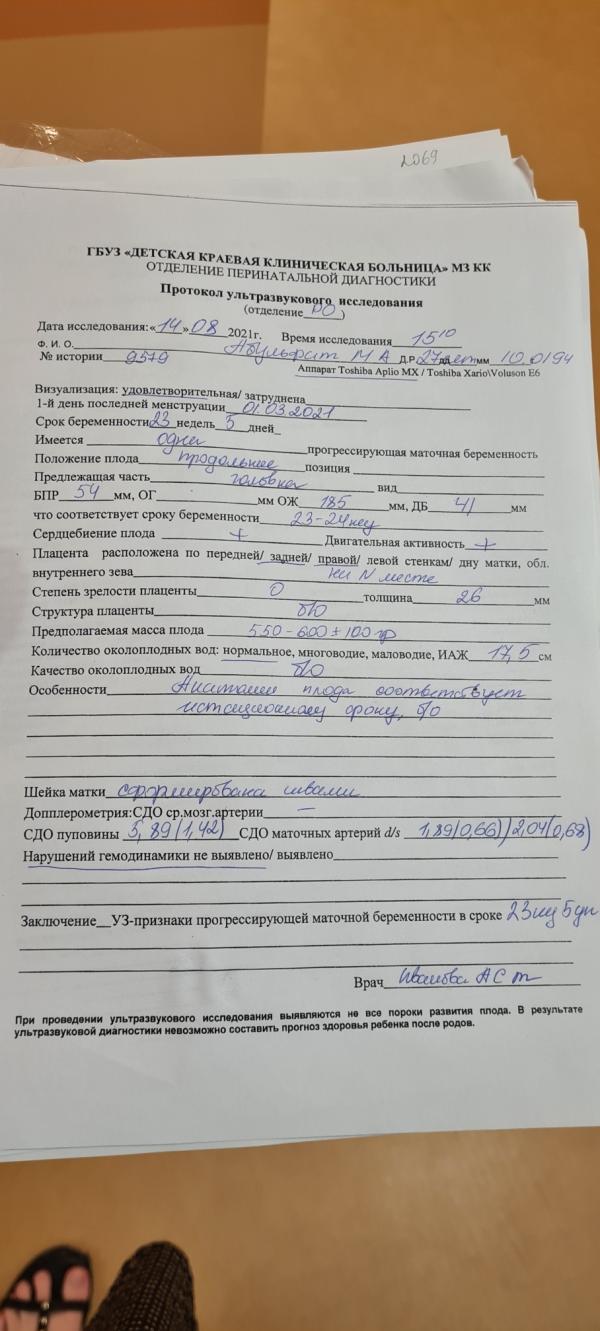 2069
ГБУЗ «ДЕТСКАЯ КРАЕВАЯ КЛИНИЧЕСКАЯ БОЛЬНИЦА» МЗ КК
ОТДЕЛЕНИЕ ПЕРИНАТАЛЬНОЙ ДИАГНОСТИКИ
Протокол ультразвукового исследования
(отделение РО )
Дата исследования:« 14 » 08 2021г. Время исследования 15 10
Ф. И. О. М А Д.Р. 27 лет мм 10.01 94
№ истории 9579 Аппарат Toshiba Aplio MX / Toshiba Xario\Voluson E6
Визуализация: удовлетворительная/ затруднена
1-й день последней менструации 01.03.2021
Срок беременности 23 недель 5 дней
Имеется одна прогрессирующая маточная беременность
Положение плода продольное позиция
Предлежащая часть головка вид
БПР 54 мм, ОГ мм ОЖ 185 мм, ДБ 41 мм
что соответствует сроку беременности 23-24 нед
Сердцебиение плода + Двигательная активность +
Плацента расположена по передней/ задней/ правой/ левой стенкам/ дну матки, обл.
внутреннего зева на N месте
Степень зрелости плаценты 0 толщина 26 мм
Структура плаценты б/о
Предполагаемая масса плода 550-600 ± 100 гр
Количество околоплодных вод: нормальное, многоводие, маловодие, ИАЖ 17,5 см
Качество околоплодных вод б/о
Особенности Анатомия плода соответствует
сроку, б/о
Шейка матки сформирована швами
Допплерометрия:СДО ср.мозг.артерии —
СДО пуповины 5,89 (1,42) СДО маточных артерий d/s 1,89(0,66)/2,04(0,68)
Нарушений гемодинамики не выявлено/ выявлено
Заключение УЗ-признаки прогрессирующей маточной беременности в сроке 23 нед 5 дн
Врач Иванова АС
При проведении ультразвукового исследования выявляются не все пороки развития плода. В результате
ультразвуковой диагностики невозможно составить прогноз здоровья ребенка после родов.